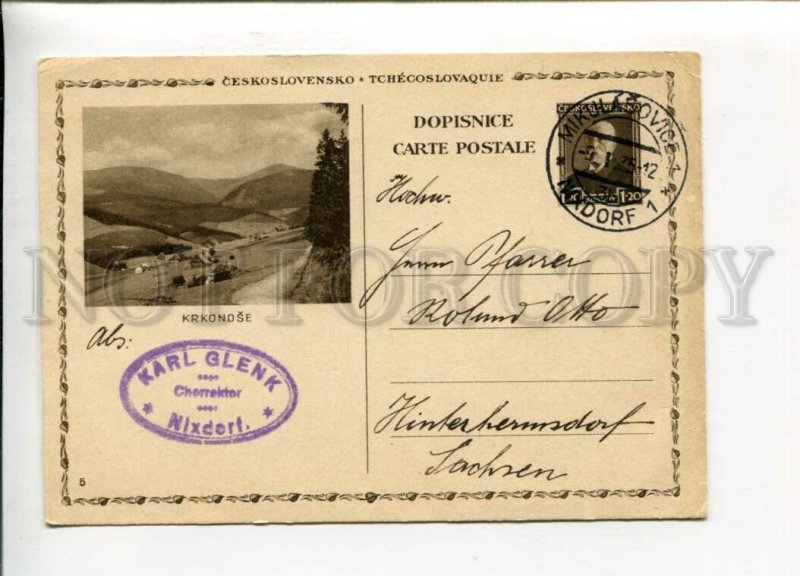 ČESKOSLOVENSKO • TCHÉCOSLOVAQUIE
DOPISNICE
CARTE POSTALE
ČESKOSLOVENSKO
1·20
MIKULÁŠOVICE 1
NIXDORF 1
Hochw.
Herrn Pfarrer
Roland Otto
Hinterhermsdorf
Sachsen
KRKONOŠE
Abs:
KARL GLENK
Chorrektor
Nixdorf.
5
NOT FOR COPY